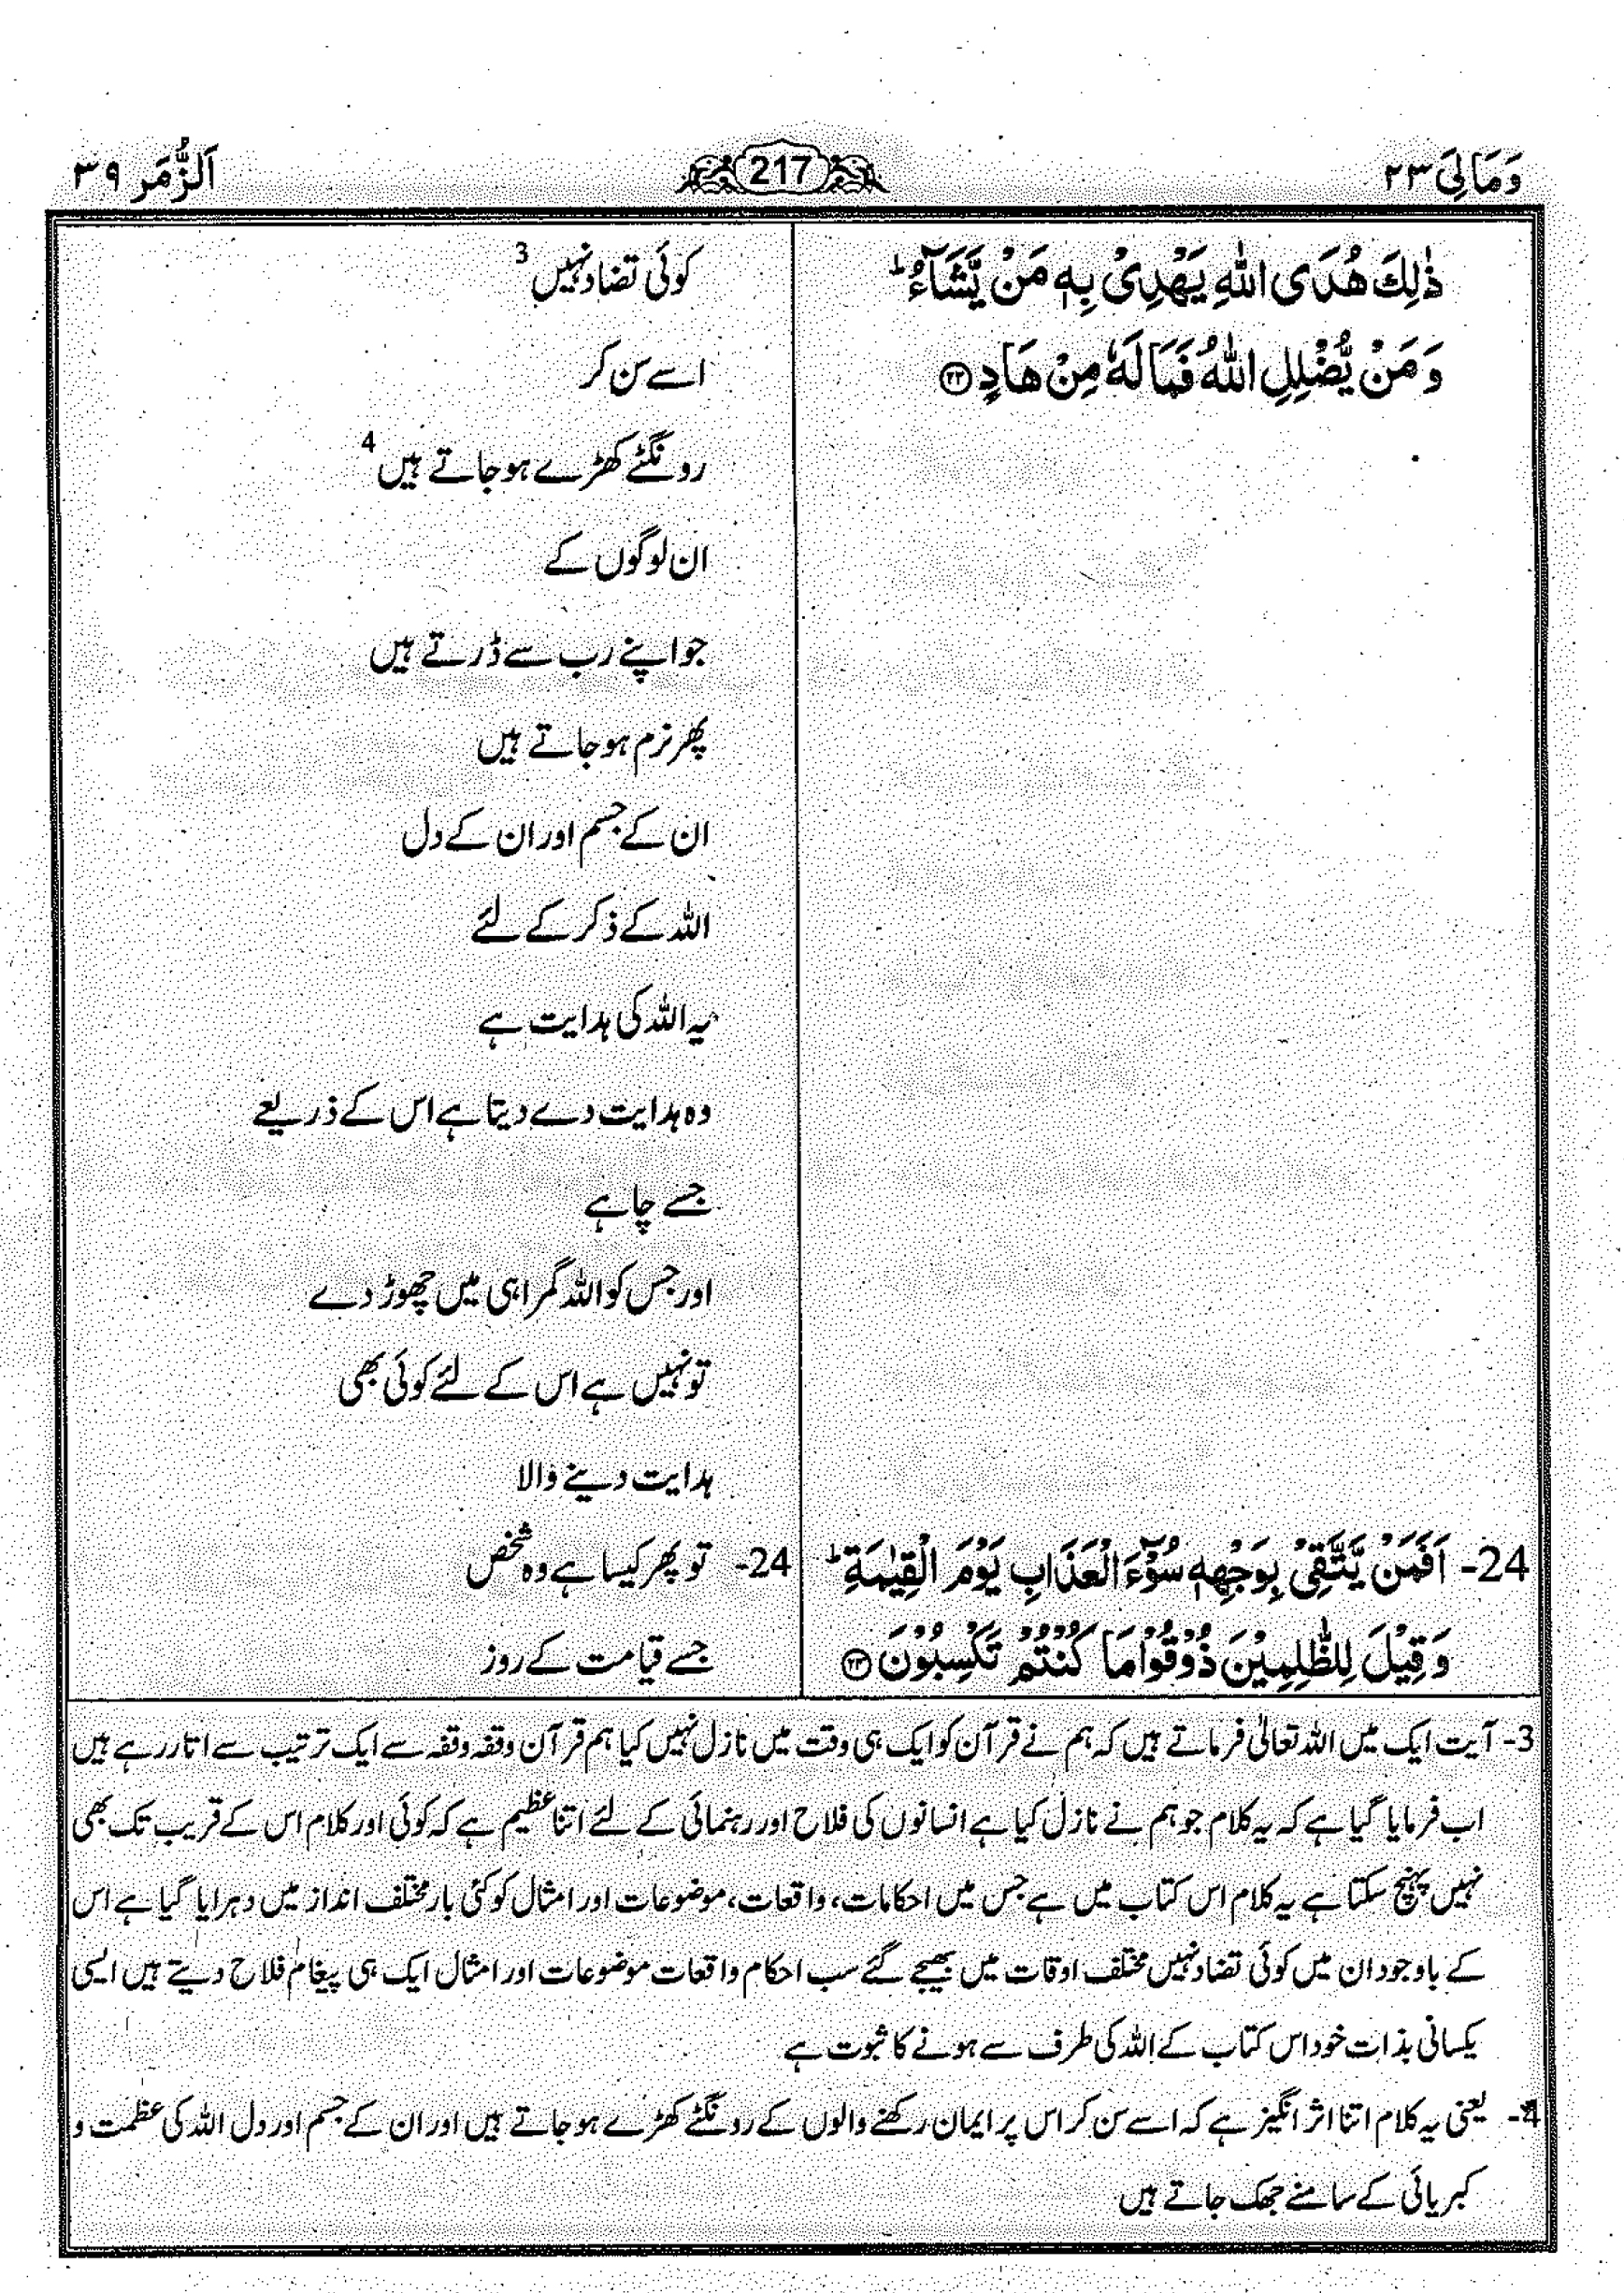 وَمَالِیَ ۲۳
217
اَلزُّمَر ۳۹
ذٰلِكَ هُدَی اللّٰهِ یَهْدِیْ بِهٖ مَنْ یَّشَآءُ ؕ
وَ مَنْ یُّضْلِلِ اللّٰهُ فَمَا لَهٗ مِنْ هَادٍ ۝۲۳
24- اَفَمَنْ یَّتَّقِیْ بِوَجْهِهٖ سُوْٓءَ الْعَذَابِ یَوْمَ الْقِیٰمَةِ ؕ
وَ قِیْلَ لِلظّٰلِمِیْنَ ذُوْقُوْا مَا كُنْتُمْ تَكْسِبُوْنَ ۝۲۴
کوئی تضاد نہیں 3
اسے سن کر
رونگٹے کھڑے ہو جاتے ہیں 4
ان لوگوں کے
جو اپنے رب سے ڈرتے ہیں
پھر نرم ہو جاتے ہیں
ان کے جسم اور ان کے دل
اللہ کے ذکر کے لئے
یہ اللہ کی ہدایت ہے
وہ ہدایت دے دیتا ہے اس کے ذریعے
جسے چاہے
اور جس کو اللہ گمراہی میں چھوڑ دے
تو نہیں ہے اس کے لئے کوئی بھی
ہدایت دینے والا
24- تو پھر کیسا ہے وہ شخص
جسے قیامت کے روز
3- آیت ایک میں اللہ تعالیٰ فرماتے ہیں کہ ہم نے قرآن کو ایک ہی وقت میں نازل نہیں کیا ہم قرآن وقفہ وقفہ سے ایک ترتیب سے اتار رہے ہیں
اب فرمایا گیا ہے کہ یہ کلام جو ہم نے نازل کیا ہے انسانوں کی فلاح اور رہنمائی کے لئے اتنا عظیم ہے کہ کوئی اور کلام اس کے قریب تک بھی
نہیں پہنچ سکتا ہے یہ کلام اس کتاب میں ہے جس میں احکامات، واقعات، موضوعات اور امثال کو کئی بار مختلف انداز میں دہرایا گیا ہے اس
کے باوجود ان میں کوئی تضاد نہیں مختلف اوقات میں بھیجے گئے سب احکام واقعات موضوعات اور امثال ایک ہی پیغام فلاح دیتے ہیں ایسی
یکسانی بذات خود اس کتاب کے اللہ کی طرف سے ہونے کا ثبوت ہے
4- یعنی یہ کلام اتنا اثر انگیز ہے کہ اسے سن کر اس پر ایمان رکھنے والوں کے رونگٹے کھڑے ہو جاتے ہیں اور ان کے جسم اور دل اللہ کی عظمت و
کبریائی کے سامنے جھک جاتے ہیں